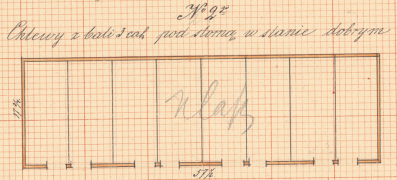 № 2
Chlewy z bali 3 cal. pod słomą w stanie dobrym
57½